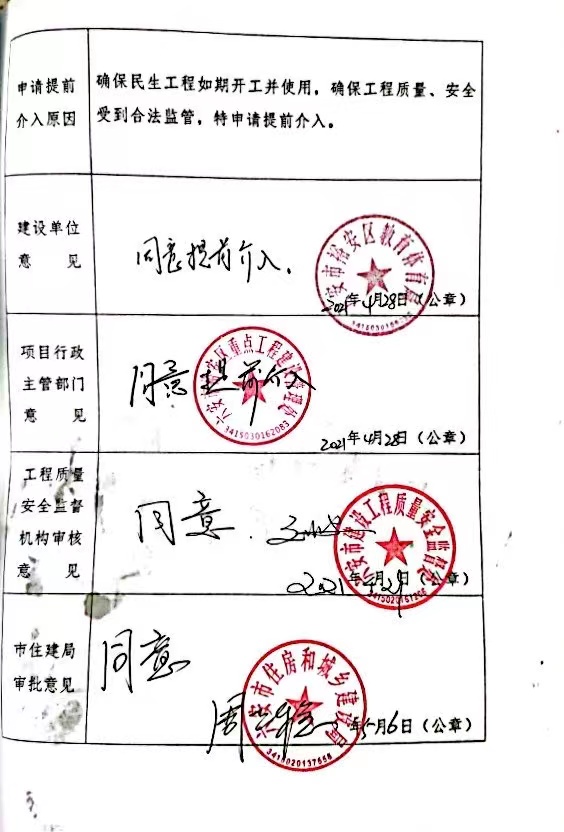 申请提前
介入原因
确保民生工程如期开工并使用，确保工程质量、安全
受到合法监管，特申请提前介入。
建设单位
意 见
同意提前介入.
六安市裕安区教育体育局
2021年4月28日（公章）
项目行政
主管部门
意 见
同意提前介入
区重点工程建设
3415030162083
2021年4月28日（公章）
工程质量
安全监督
机构审核
意 见
同意.
六安市建设工程质量安全监督站
3415020161266
2021年4月29日（公章）
市住建局
审批意见
同意
六安市住房和城乡建设局
3415020137658
年5月6日（公章）